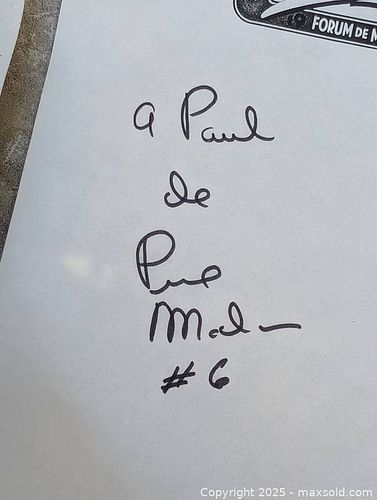 FORUM DE M
a Paul
de
# 6
Copyright 2025 - maxsold.com